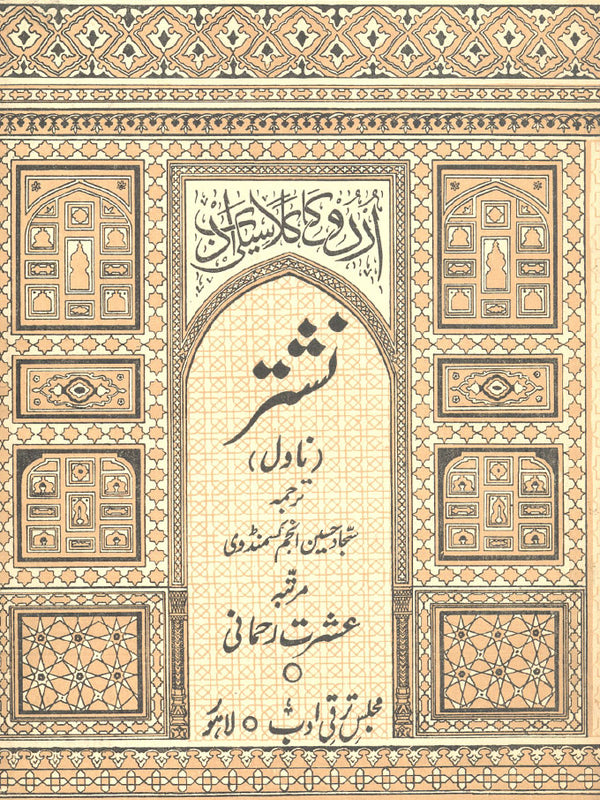 اُردُو کا کلاسیکی ادب
نشتر
(ناول)
ترجمہ
سجاد حسین انجم کسمنڈوی
مرتبہ
عشرت رحمانی
مجلسِ ترقیِ ادب ○ لاہور